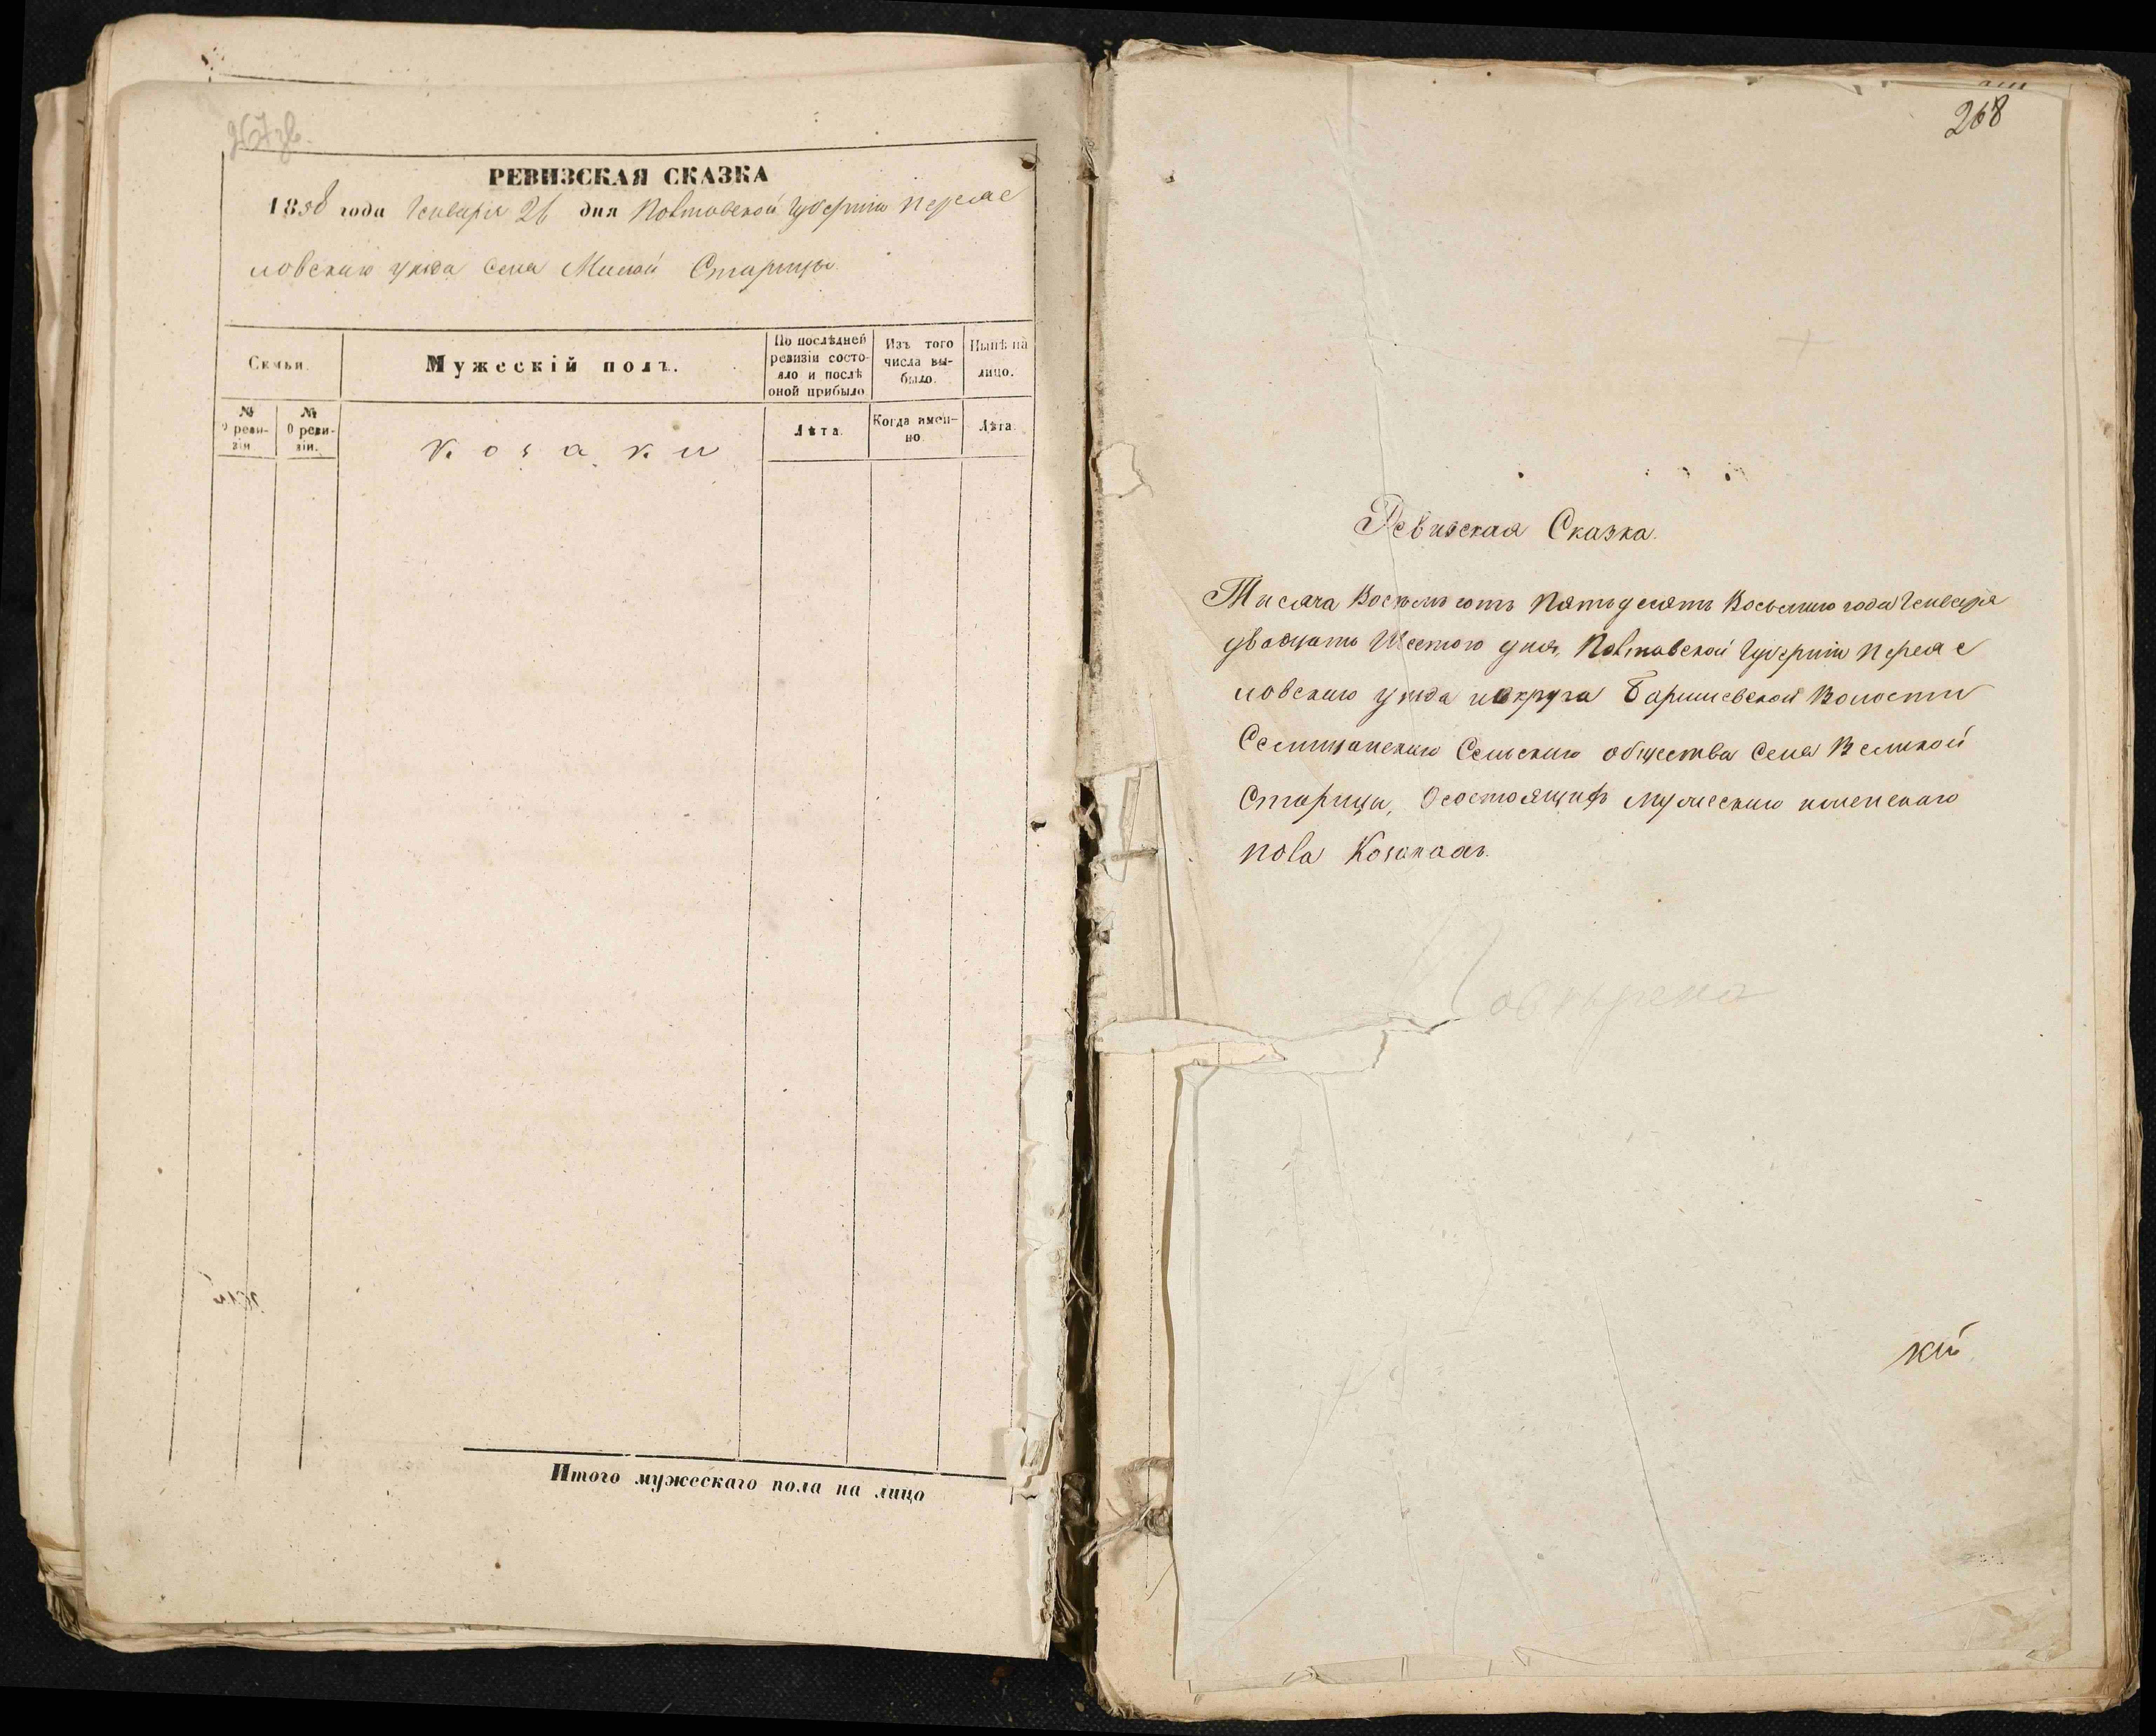 267 зв.
РЕВИЗСКАЯ СКАЗКА
1858 года Генваря 26 дня Полтавской Губерніи Переяс
ловскаго уѣзда Села Малой Старицы.
Семьи.
Мужескій полъ.
По послѣдней ревизіи состо-
яло и послѣ
оной прибыло
Изъ того
числа вы-
было.
Нынѣ на
лицо.
№
О реви-
зіи.
№
О реви-
зіи.
Козаки
Лѣта.
Когда имен-
но.
Лѣта.
Итого мужескаго пола на лицо
268
Ревизская Сказка.
Тисяча Восемьсотъ Пятьдесятъ Восьмого года Генваря
двадцать Шестого дня, Полтавской Губерніи Переяс
ловскаго уѣзда и округа Баришевской Волости
Селищанскаго Сельскаго общества Села Великой
Старицы, О состоящихъ мужескаго и женскаго
пола Козакахъ.
Повѣрена
кій